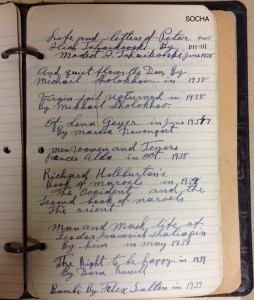 SOCHA
Life and letters of Peter PART
Ilich Tchaikovski By VII-III
Modest I. Tchaikovski June 1938
And quiet flows the Don By
Michail Sholokhov in 1938
Virgin soil upturned in 1938
By Mikhail Sholokhov
Of Lena Geyer in June 1937
By Marcia Davenport
Men women and Tenors
Frances Alda in Oct. 1938
Richard Hallburton's
Book of marvels in 1938
The Occident and the
Second book of marvels
The orient.
Man and Mask life of
Feodor Ivanovich Shaliapin
By him in may 1939
The Right to be happy in 1939
By Dora Russell
Bambi By Felix Salten in 1939